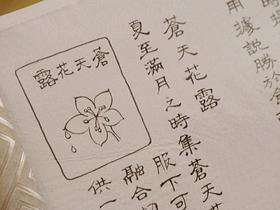 用據說勝
蒼天花露
夏至滿月之時集蒼天
服下可
融合
供一
蒼天花露